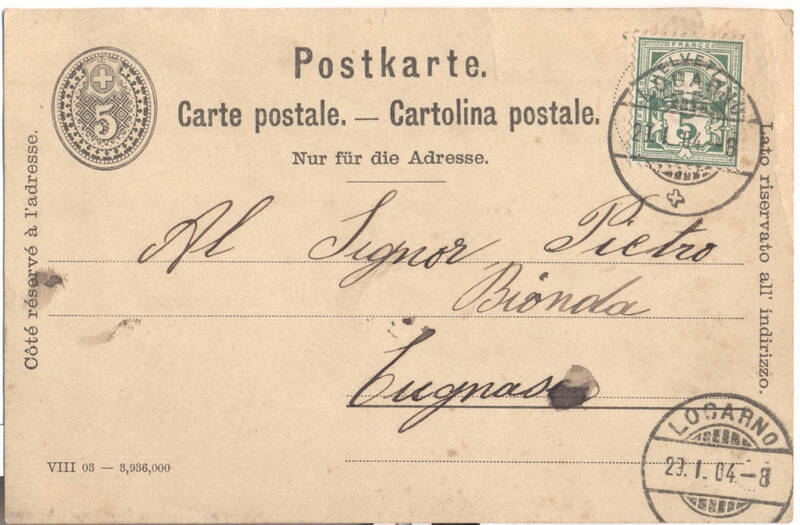 Postkarte.
Carte postale. — Cartolina postale.
Nur für die Adresse.
5
FRANCO
HELVETIA
5
Côté réservé à l'adresse.
Lato riservato all' indirizzo.
Al Signor Pietro
Bionda
Cugnasco
VIII 03 — 3,936,000
LOCARNO
29.1.04.–8